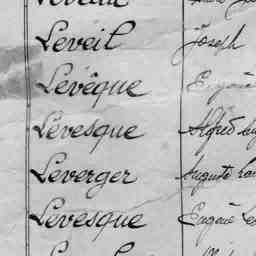 Leveil Joseph
Levêque Eugène
Lévesque Alfred
Leverger Auguste
Levesque Eugène